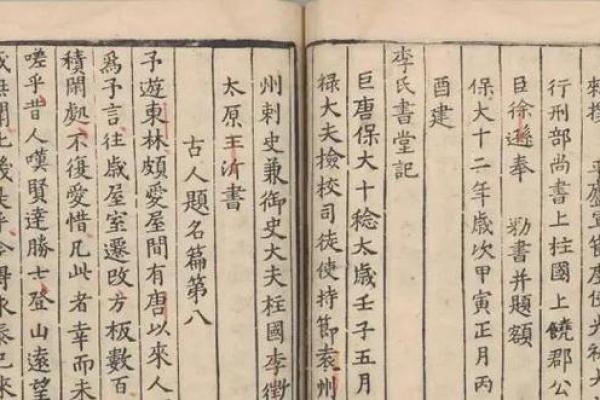 行刑部尚書上柱國上饒郡公
臣徐遜奉 勑書并題額
保大十二年歲次甲寅正月丙
酉建
李氏書堂記
巨唐保大十稔太歲壬子五月
祿大夫檢校司徒使持節袁州
州刺史兼御史大夫柱國李徵
太原王沂書
古人題名篇第八
予遊東林頗愛屋間有唐以來人
爲予言往歲屋室遷改方板數百
積閑處不復愛惜凡此者幸而未
嗟乎昔人嘆賢達勝士登山遠望